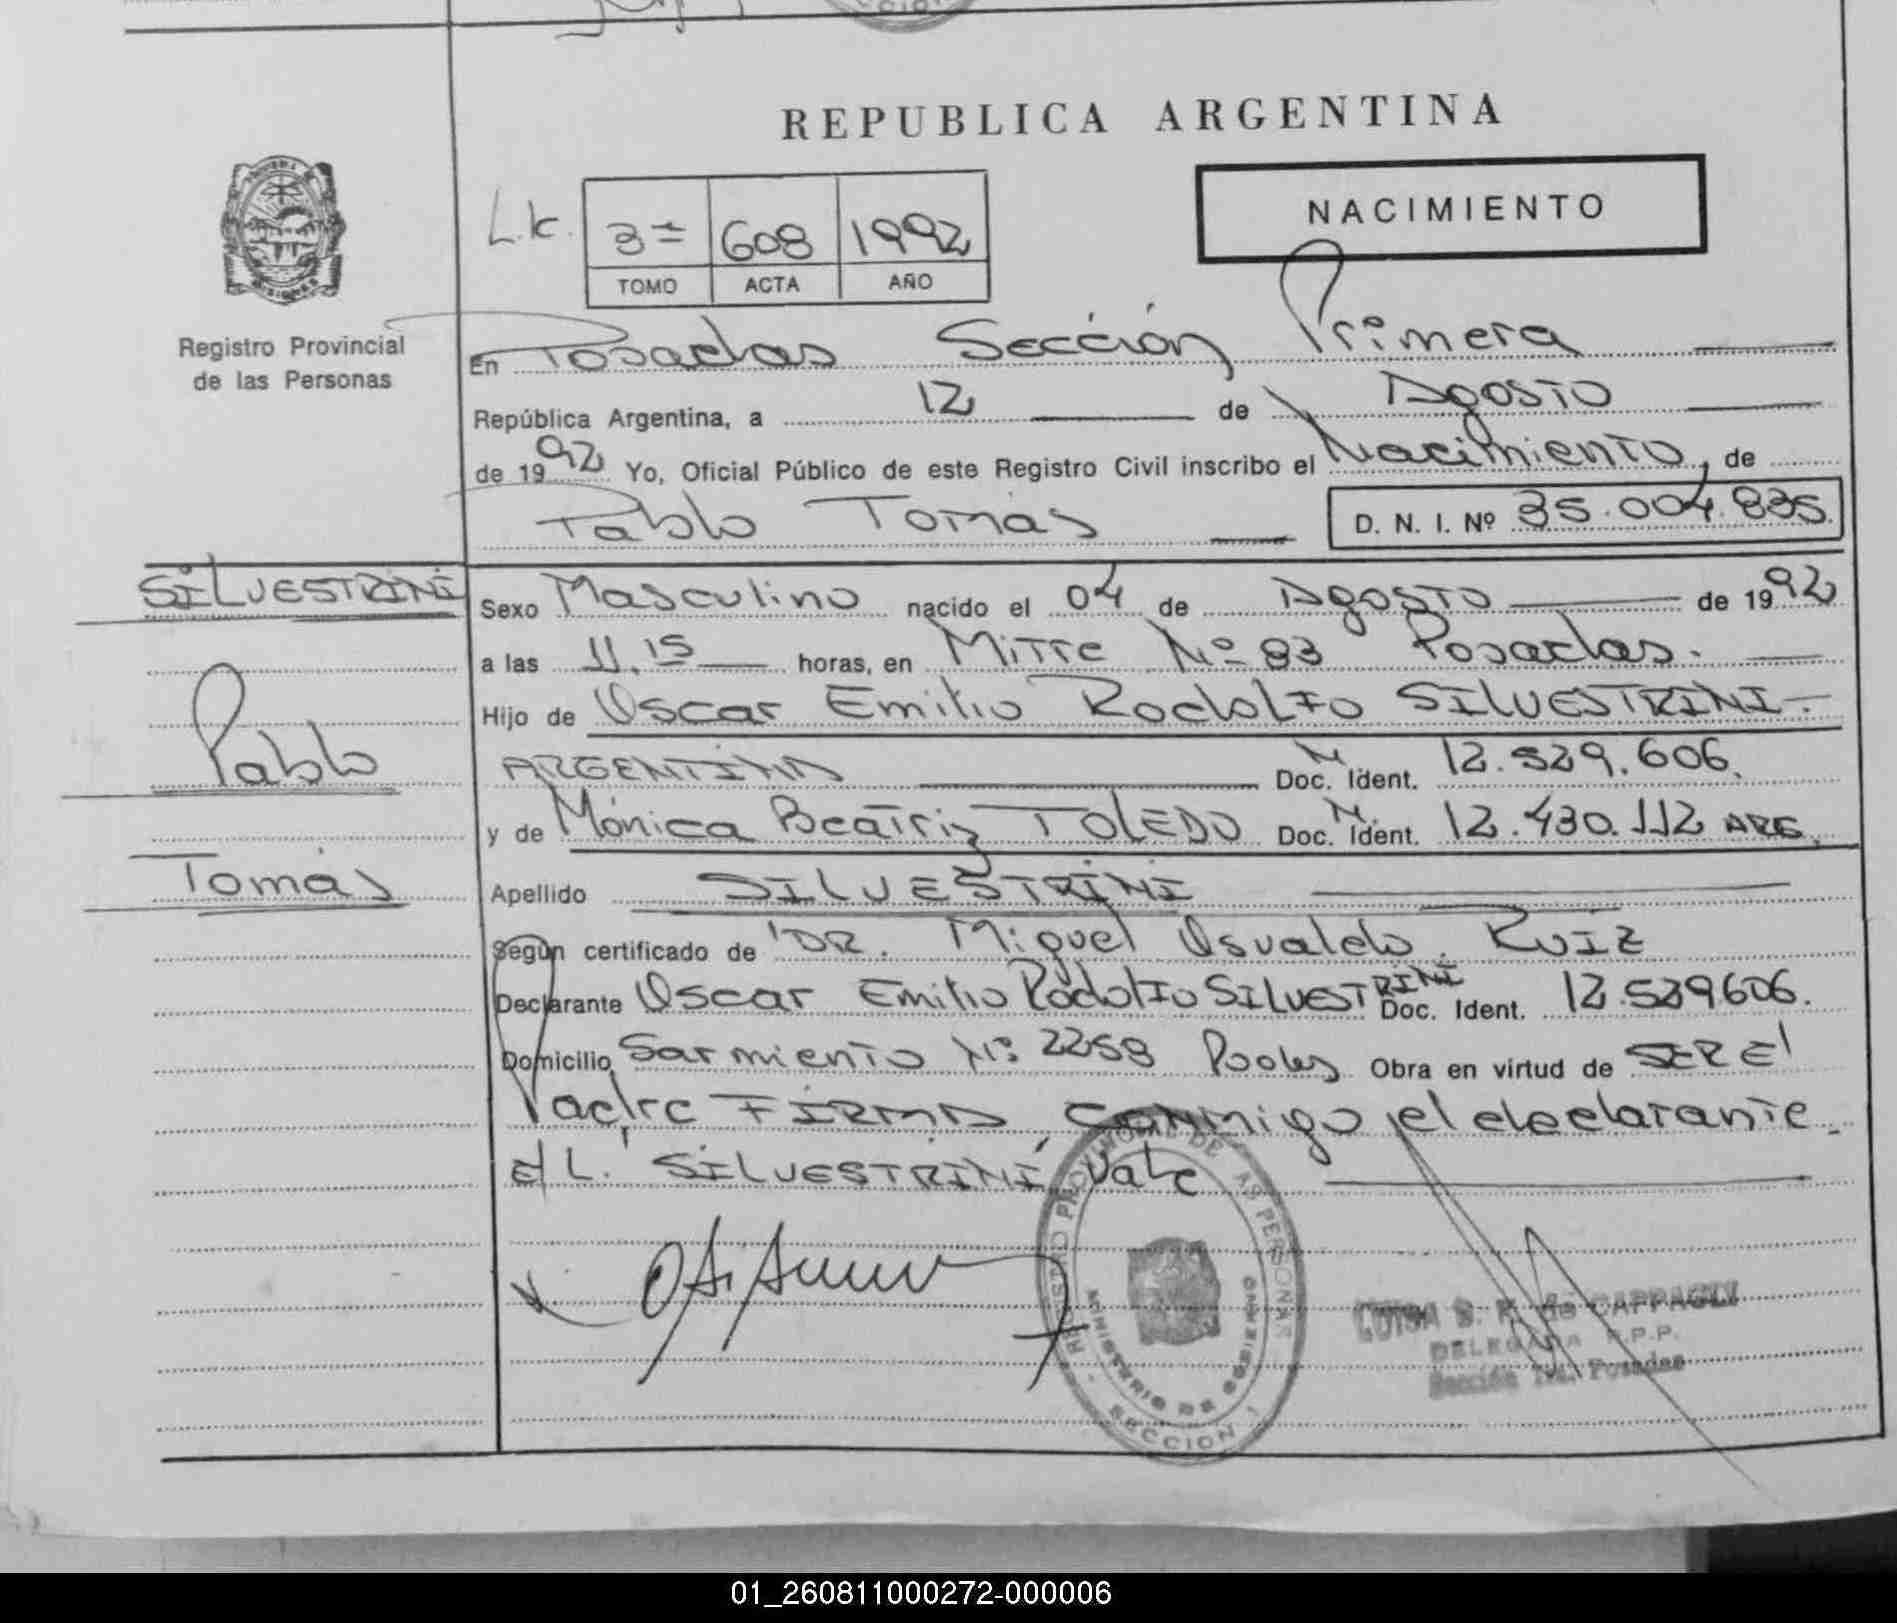 REPUBLICA ARGENTINA
NACIMIENTO
3ª 608 1992
TOMO ACTA AÑO
Registro Provincial
de las Personas
En Posadas Sección Primera
República Argentina, a 12 de Agosto
de 1992 Yo, Oficial Público de este Registro Civil inscribo el Nacimiento, de
Pablo Tomás D. N. I. Nº 35.004.835.
SILVESTRINI
Pablo
Tomás
Sexo Masculino nacido el 04 de Agosto de 1992
a las 11.15 horas, en Mitre Nº 83 Posadas.
Hijo de Oscar Emilio Rodolfo SILVESTRINI
ARGENTINA Doc. Ident. 12.529.606.
y de Mónica Beatriz TOLEDO Doc. Ident. 12.430.112 ARG.
Apellido SILVESTRINI
Según certificado de DR. Miguel Osvaldo Ruiz
Declarante Oscar Emilio Rodolfo SILVESTRINI Doc. Ident. 12.529606.
Domicilio Sarmiento Nº 2258 Obra en virtud de SER El
Padre FIRMA conmigo el declarante.
E/L. SILVESTRINI, Vale
REGISTRO PROVINCIAL DE LAS PERSONAS
MINISTERIO DE GOBIERNO
SECCION 1
LUISA de CAPPAGLI
DELEGADA R.P.P.
Sección 1ra. Posadas
01_260811000272-000006